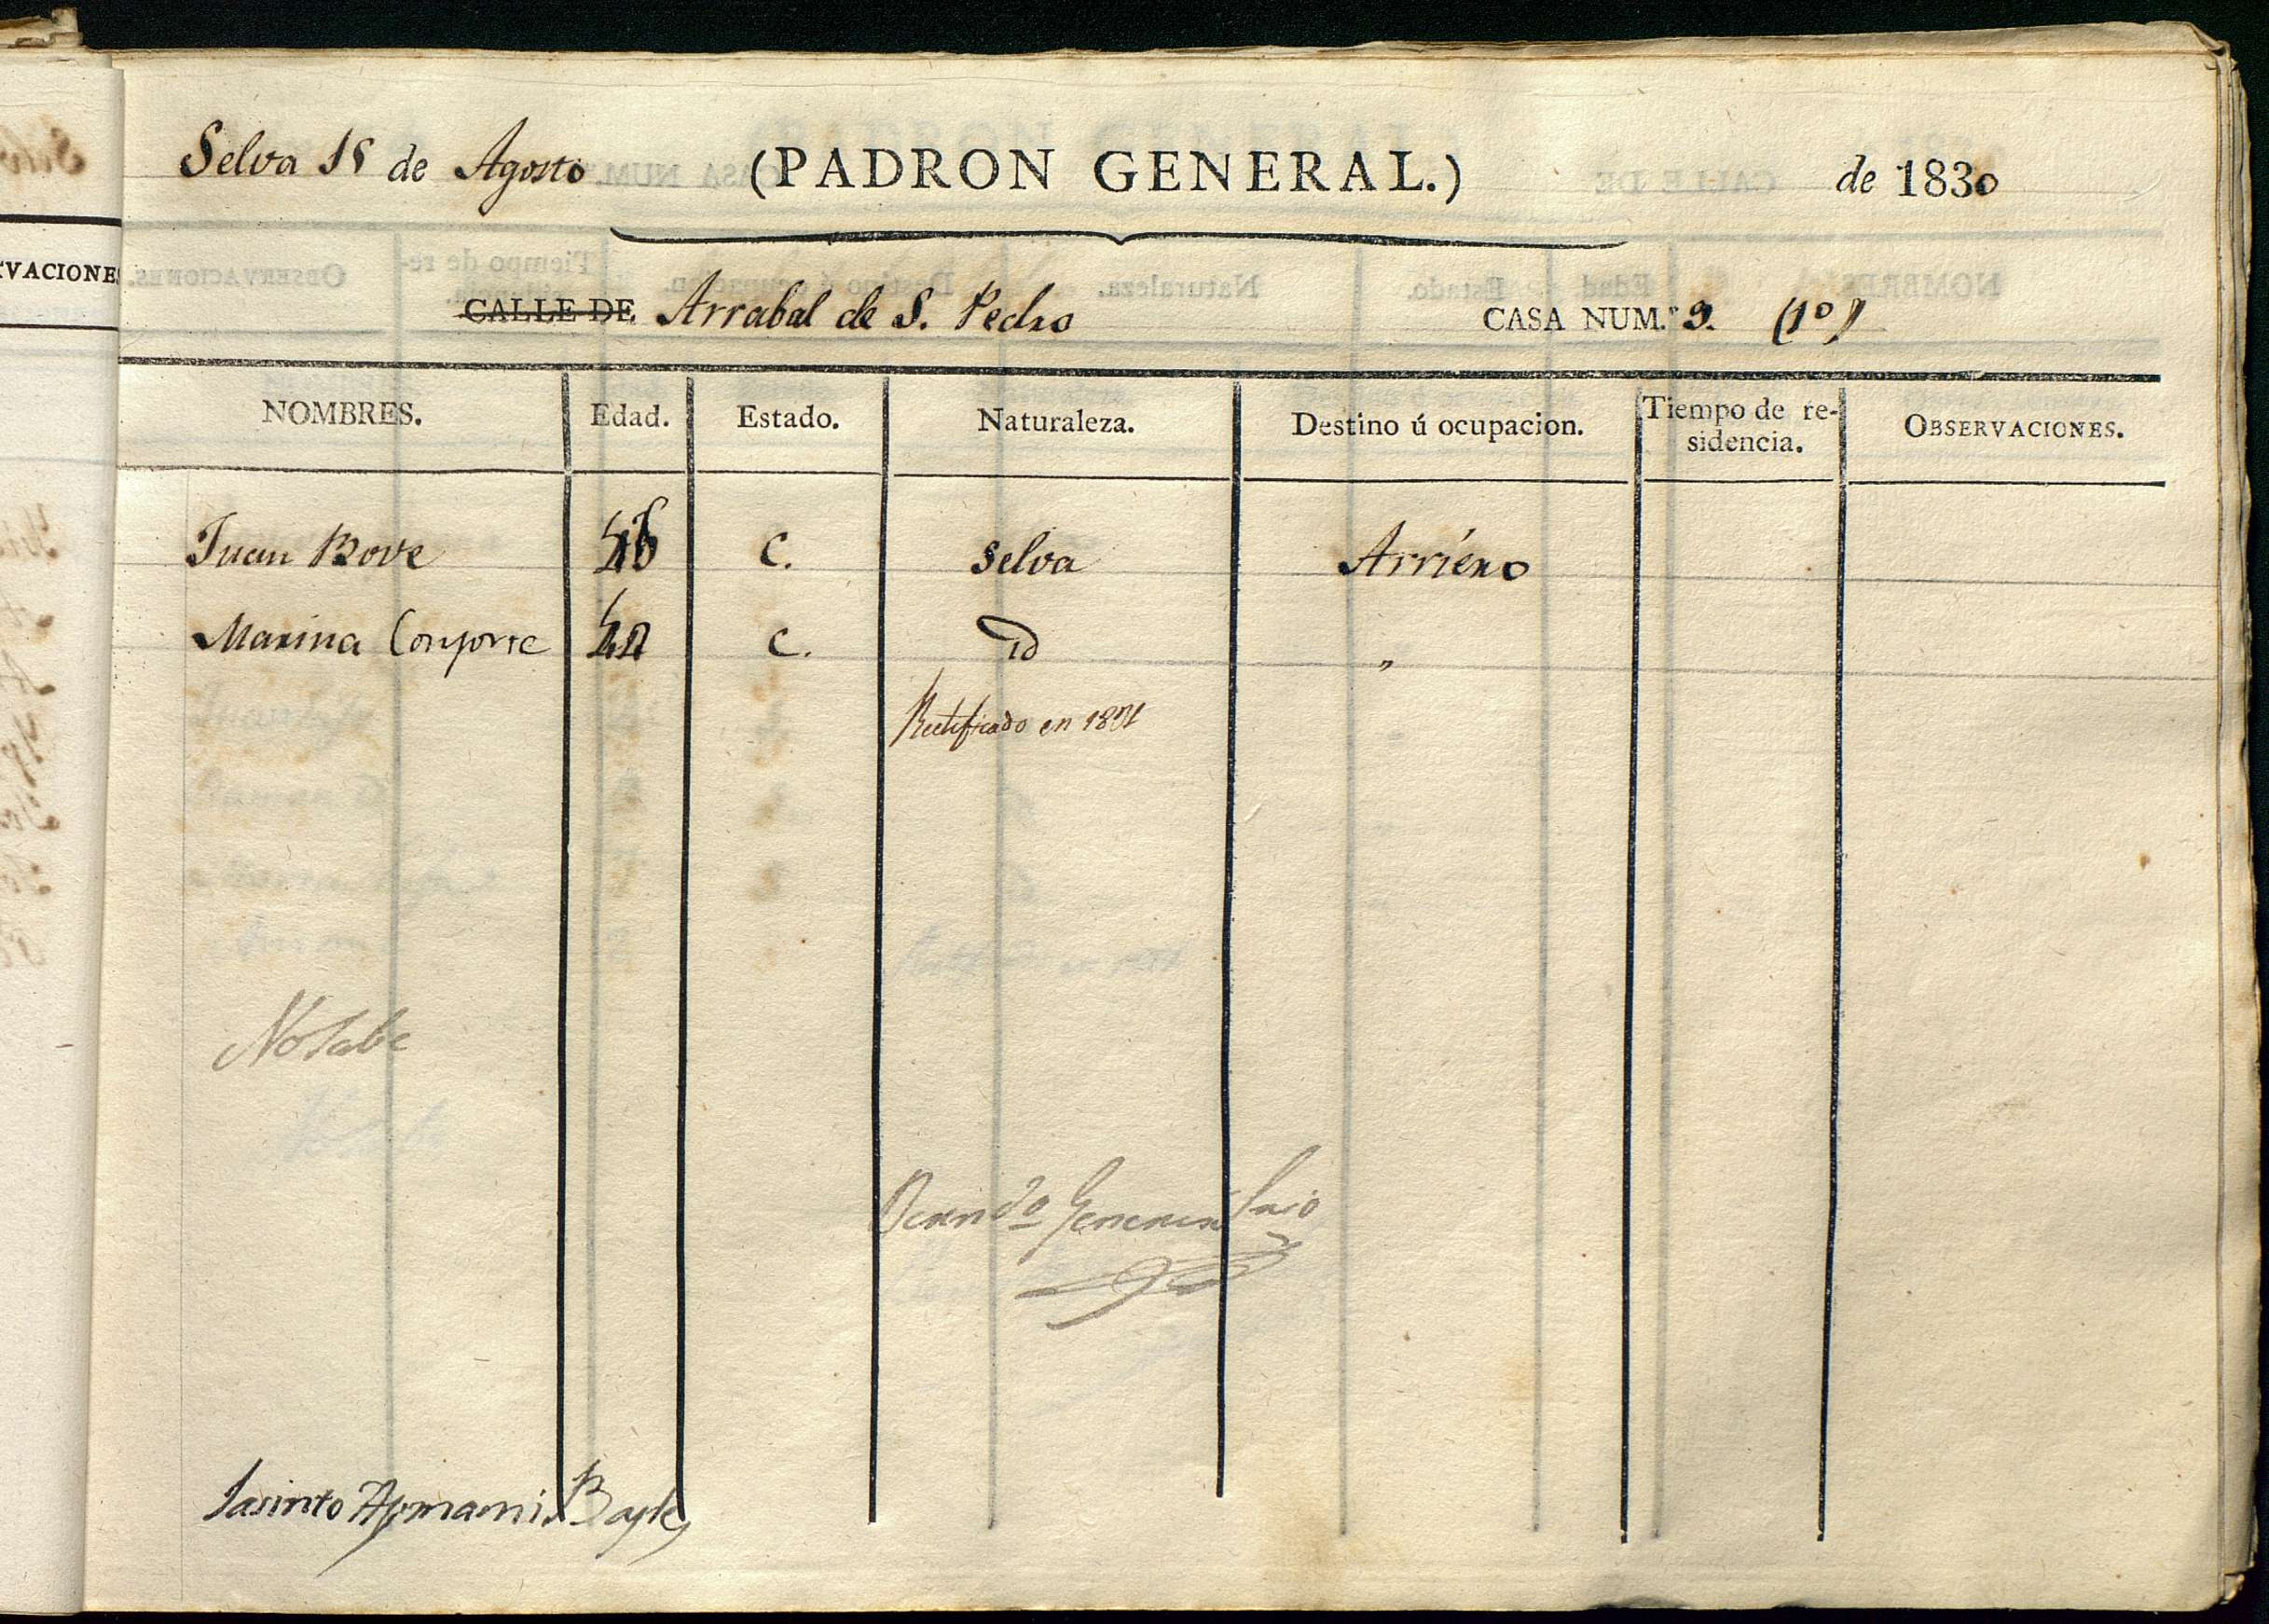 Selva 15 de Agosto (PADRON GENERAL.) de 1830
CALLE DE Arrabal de S. Pedro CASA NUM.º 9. (1º)
NOMBRES. Edad. Estado. Naturaleza. Destino ú ocupacion. Tiempo de re-
sidencia. OBSERVACIONES.
Juan Bove C. Selva Arriéro
Marina C. id "
Rectificado en 1831
No Sabe
Jasinto Bayle